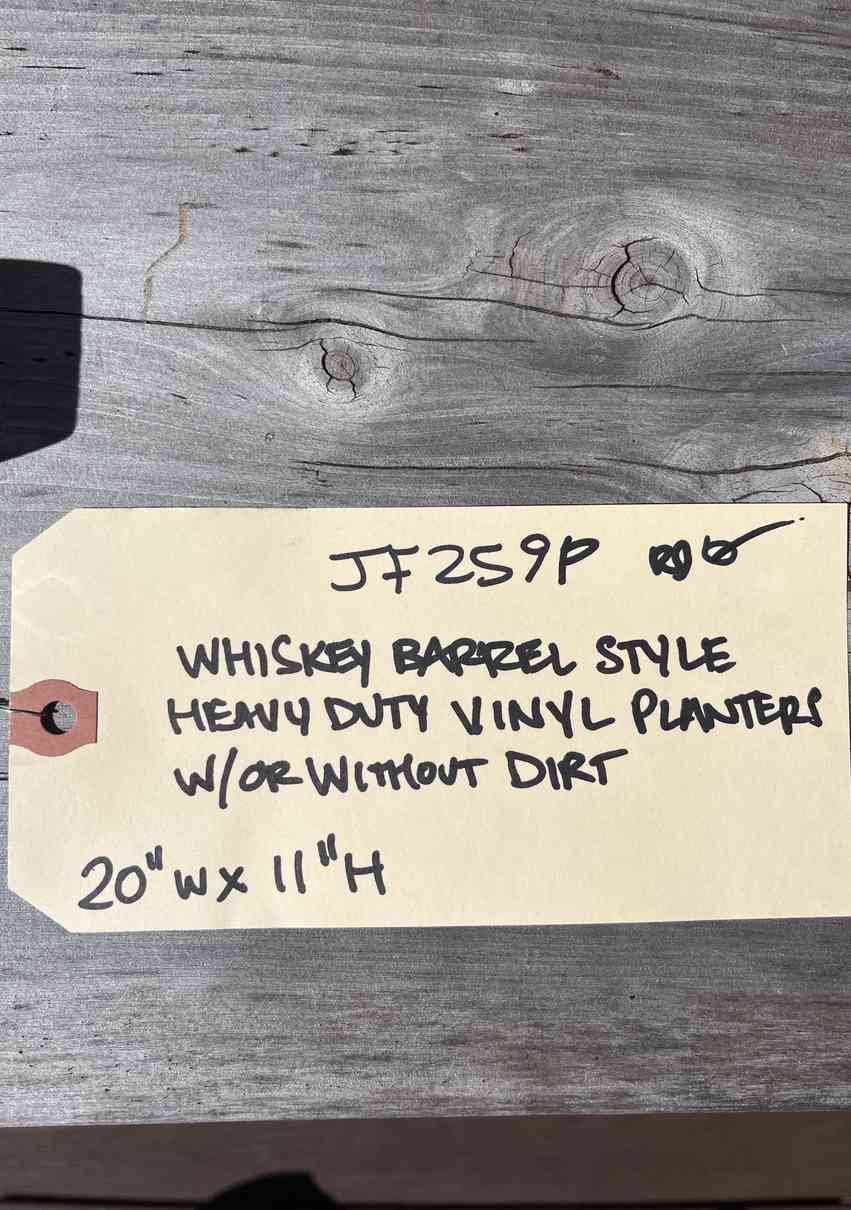 JF259P
WHISKEY BARREL STYLE
HEAVY DUTY VINYL PLANTERS
W/OR WITHOUT DIRT
20"W X 11"H